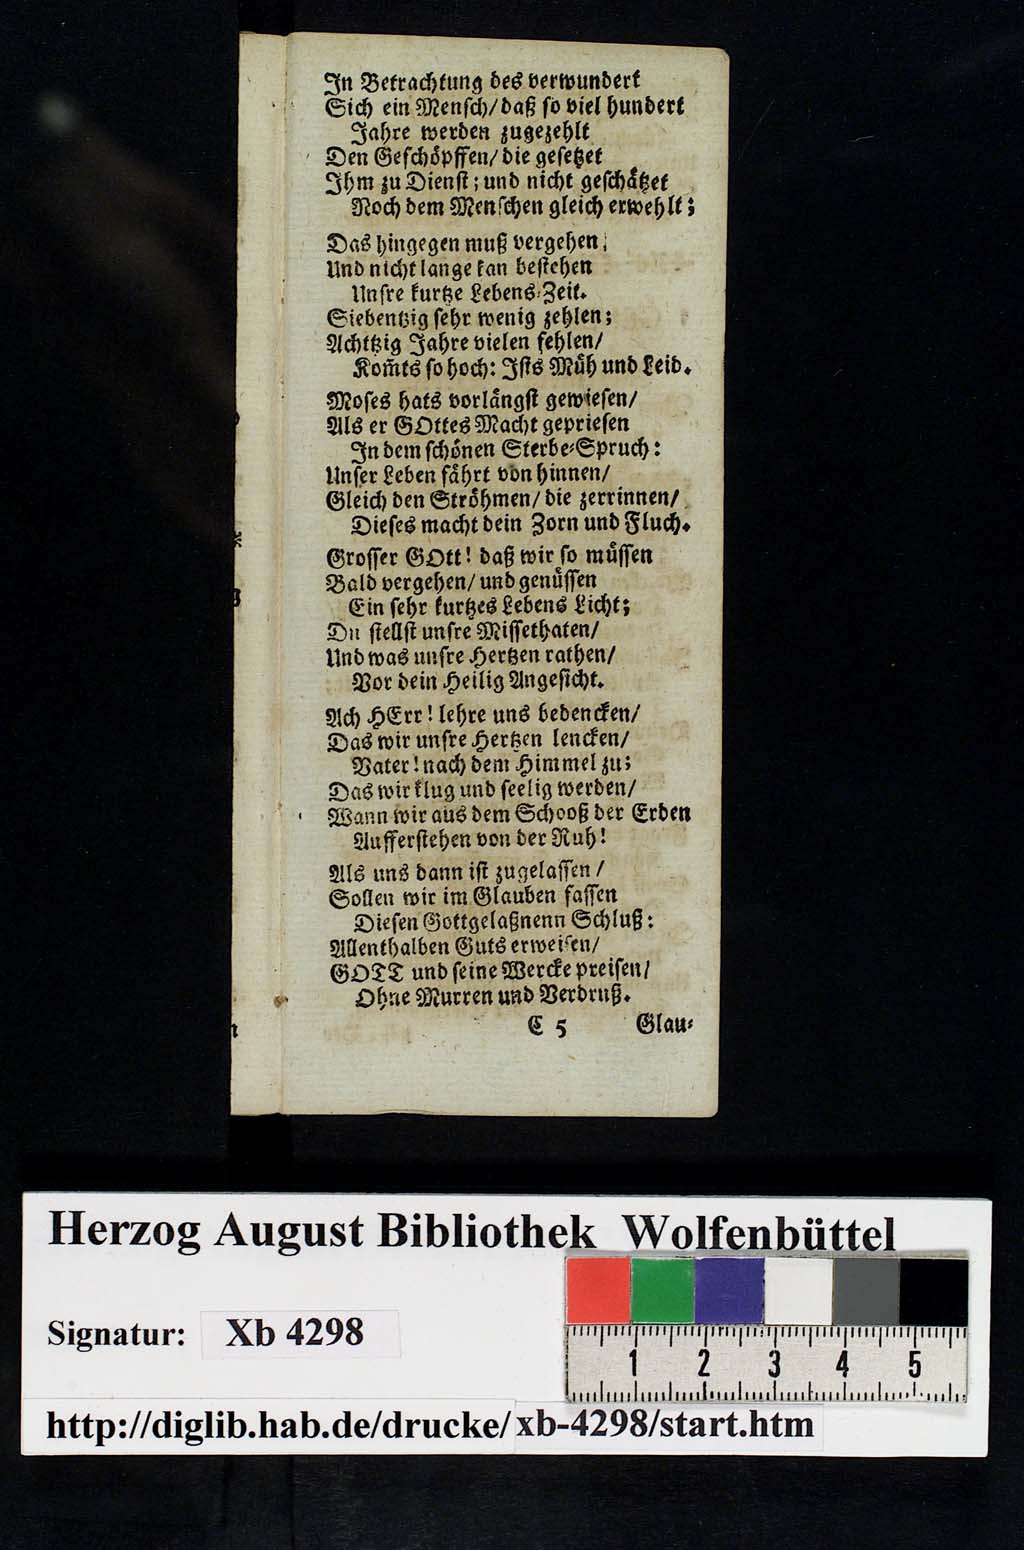 In Betrachtung des verwundert
Sich ein Mensch/ daß so viel hundert
Jahre werden zugezehlt
Den Geschöpffen/ die gesetzet
Ihm zu Dienst; und nicht geschätzet
Noch dem Menschen gleich erwehlt;
Das hingegen muß vergehen,
Und nicht lange kan bestehen
Unsre kurtze Lebens-Zeit.
Siebentzig sehr wenig zehlen;
Achttzig Jahre vielen fehlen/
Kom̃ts so hoch: Ists Müh und Leid.
Moses hats vorlängst gewiesen/
Als er GOttes Macht gepriesen
In dem schönen Sterbe-Spruch:
Unser Leben fährt von hinnen/
Gleich den Ströhmen/ die zerrinnen/
Dieses macht dein Zorn und Fluch.
Grosser GOtt! daß wir so müssen
Bald vergehen/ und genüssen
Ein sehr kurtzes Lebens Licht;
Du stellst unsre Missethaten/
Und was unsre Hertzen rathen/
Vor dein Heilig Angesicht.
Ach HErr! lehre uns bedencken/
Das wir unsre Hertzen lencken/
Vater! nach dem Himmel zu;
Das wir klug und seelig werden/
Wann wir aus dem Schooß der Erden
Aufferstehen von der Ruh!
Als uns dann ist zugelassen/
Sollen wir im Glauben fassen
Diesen Gottgelaßnenn Schluß:
Allenthalben Guts erweisen/
GOTT und seine Wercke preisen/
Ohne Murren und Verdruß.
C 5 Glau-
Herzog August Bibliothek Wolfenbüttel
Signatur: Xb 4298
1 2 3 4 5
http://diglib.hab.de/drucke/xb-4298/start.htm